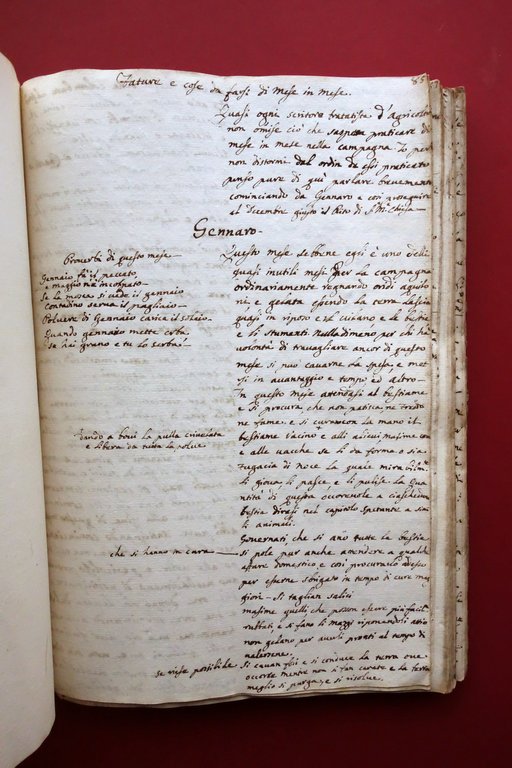 Fatture e cose da farsi di Mese in Mese.
85
Quasi ogni scrittore trattatista d'agricoltura
non omise ciò che praticare di
mese in mese nella campagna. Io per
non distormi dal ordin da essi praticato
penso pure di qui parlare brevemente
cominciando da Gennaro e così proseguire
al Dicembre giusto il Rito di S. M. Chiesa
Gennaro
Proverbi di questo mese
Gennaio fà il peccato,
e maggio n'è incolpato
Se la mosca si vede il gennaio
Contadino serva il pagliaio
Polvere di Gennaio carica il solaio.
Quando gennaio mette erba,
se hai grano e tu lo serba.
Questo mese sebbene egli è uno delli
quasi inutili mesi per la campagna
ordinariamente regnando ordi aquilo
ni, e gelata essendo la terra lascia
quasi in riposo e il vilano e le bestie
e li stumenti. Nulladimeno per chi hà
volontà di travagliare ancor di questo
mese si può cavarne la spesa, e met
tersi in avantaggio e tempo ed altro
In questo mese attendasi al bestiame
e si procura, che non patisca ne freddo
ne fame, e si curano con la mano il
bestiame vacino e alli massime
e alle vacche se li da forma o sia
di noce la quale mirabilm.
li giova, li pasce, e li pulisce la qua
ntità di questa occorevole a ciascheduna
bestia dirasi nel capitolo spetante a simi
li animali.
dando a bovi la pulla crivelata
e libera da tutta la polve
Governati, che si ano tutte le bestie
che si hanno in cura
si pole pur anche attendere a qualche
affare domestico e così procurarlo adesso
per esserne sbrigato in tempo di cure mag
giori. Si tagliano salici
massime quelli che possono essere più facil
e si fano li mazzi riponendoli acciò
non gelano per averli pronti al tempo di
se riesce possibile Si cavan fossi e si conduce la terra ove
occorde mentre non si fan curate e la terra
meglio si purga, e si risolve.